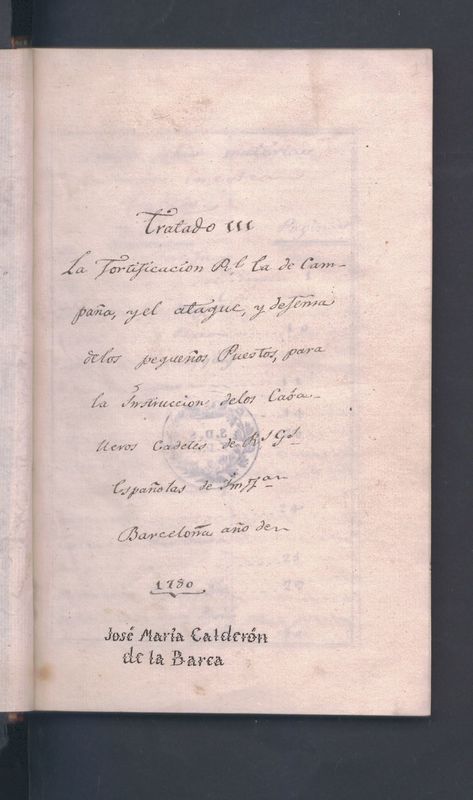 Tratado III
La Fortificacion R.l la de Cam-
paña, y el ataque, y defensa
de los pequeños Puestos, para
la Instruccion de los Caba-
lleros Cadetes de R.s G.s
Españolas de Inf.an
Barcelona año de
1780
José María Calderón
de la Barca